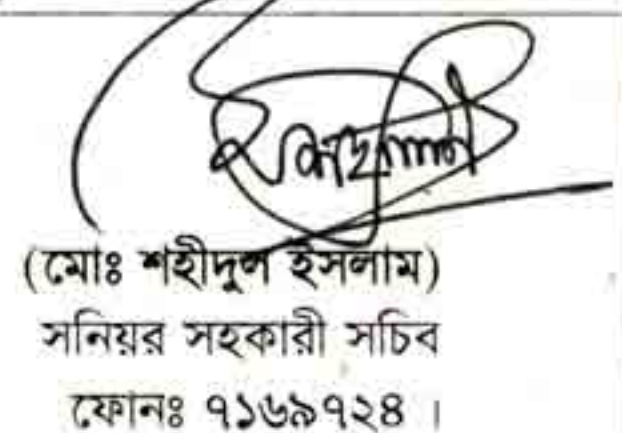 (মোঃ শহীদুল ইসলাম)
সনিয়র সহকারী সচিব
ফোনঃ ৭১৬৯৭২৪ ।